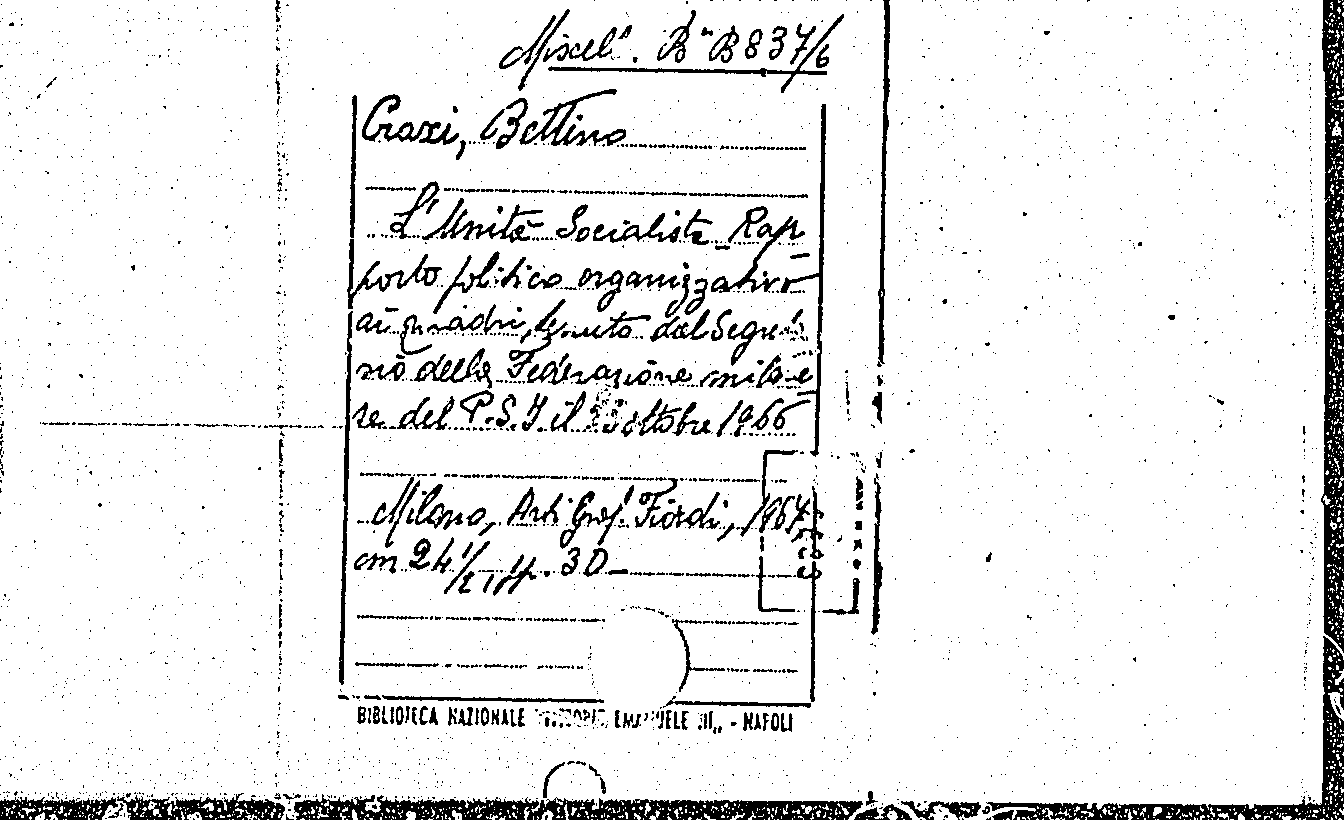 Miscel.ª B.ª B 837/6
Craxi, Bettino
L'Unità Socialista_ Rap
porto politico organizzativo
ai quadri, tenuto dal Segreta
rio della Federazione milane
se del P.S.I. il ottobre 1966
Milano, Arti Graf. Fiordi, 1967,
cm 24 1/2 pp. 30_
BIBLIOTECA NAZIONALE "VITTORIO EMANUELE III„ - NAPOLI